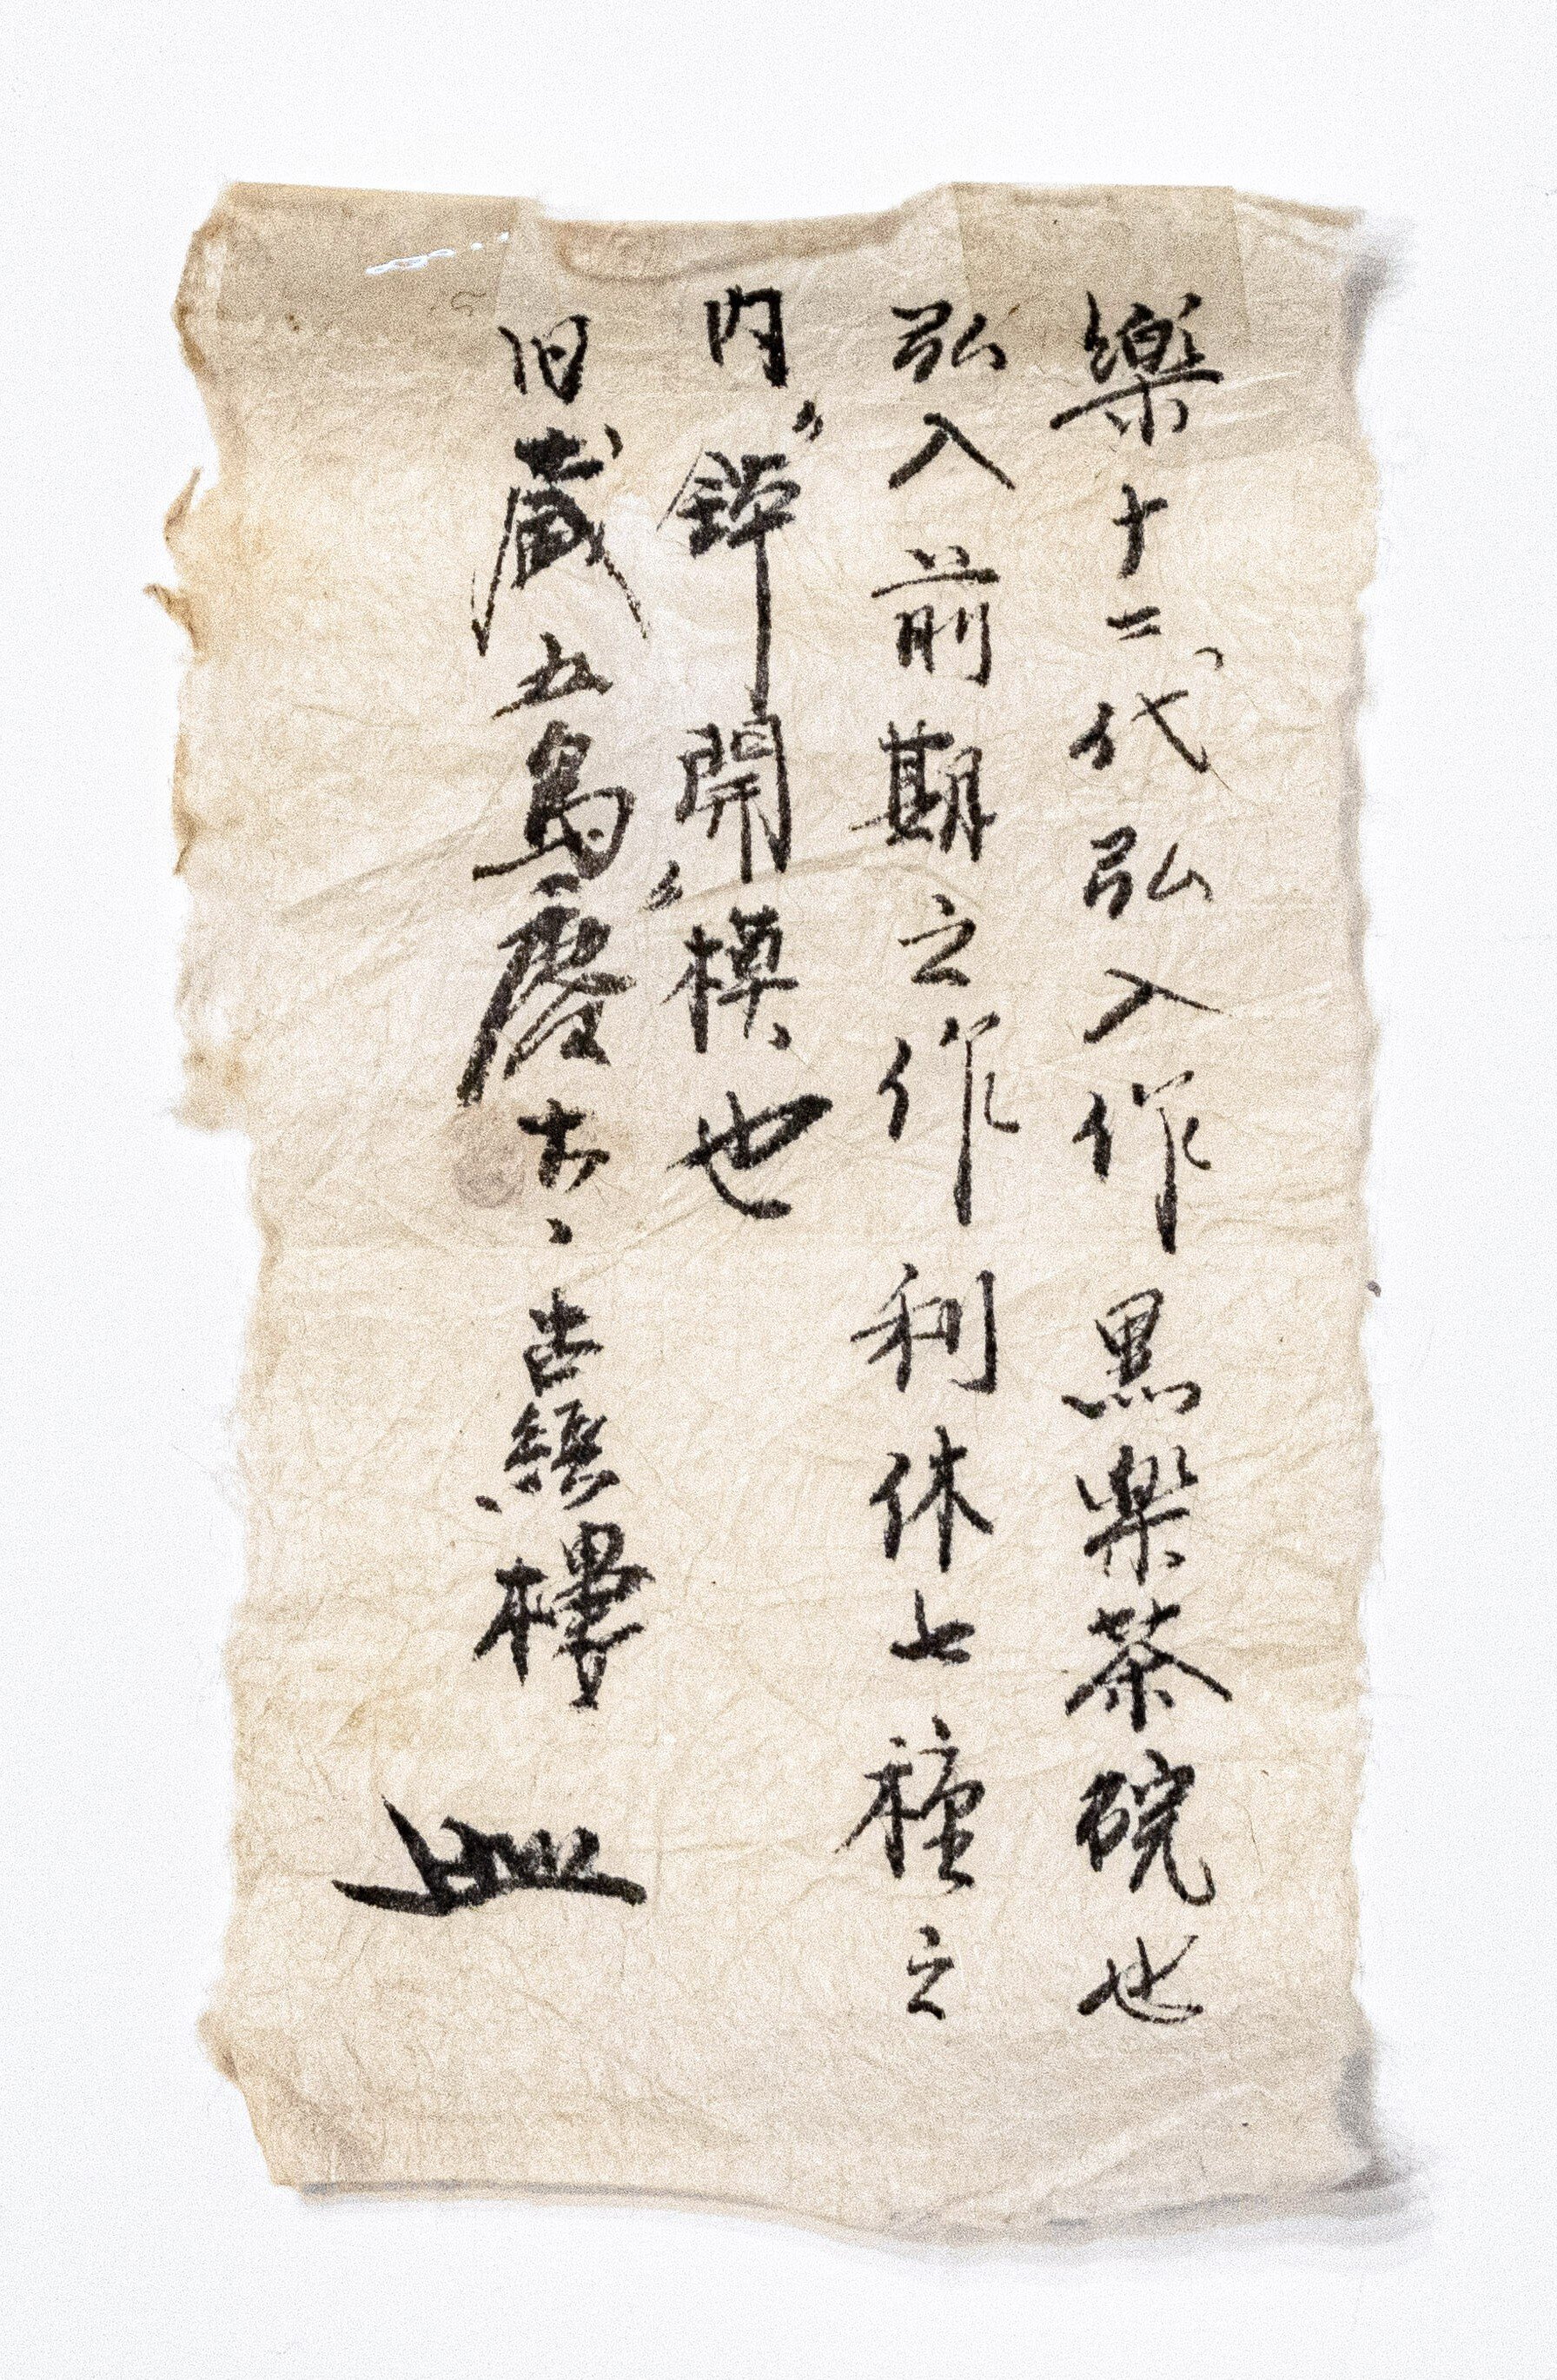 樂十二代弘入作黒楽茶碗也
弘入前期之作利休七種之
内〝鉢開〟模也
旧蔵五島慶太、古経樓